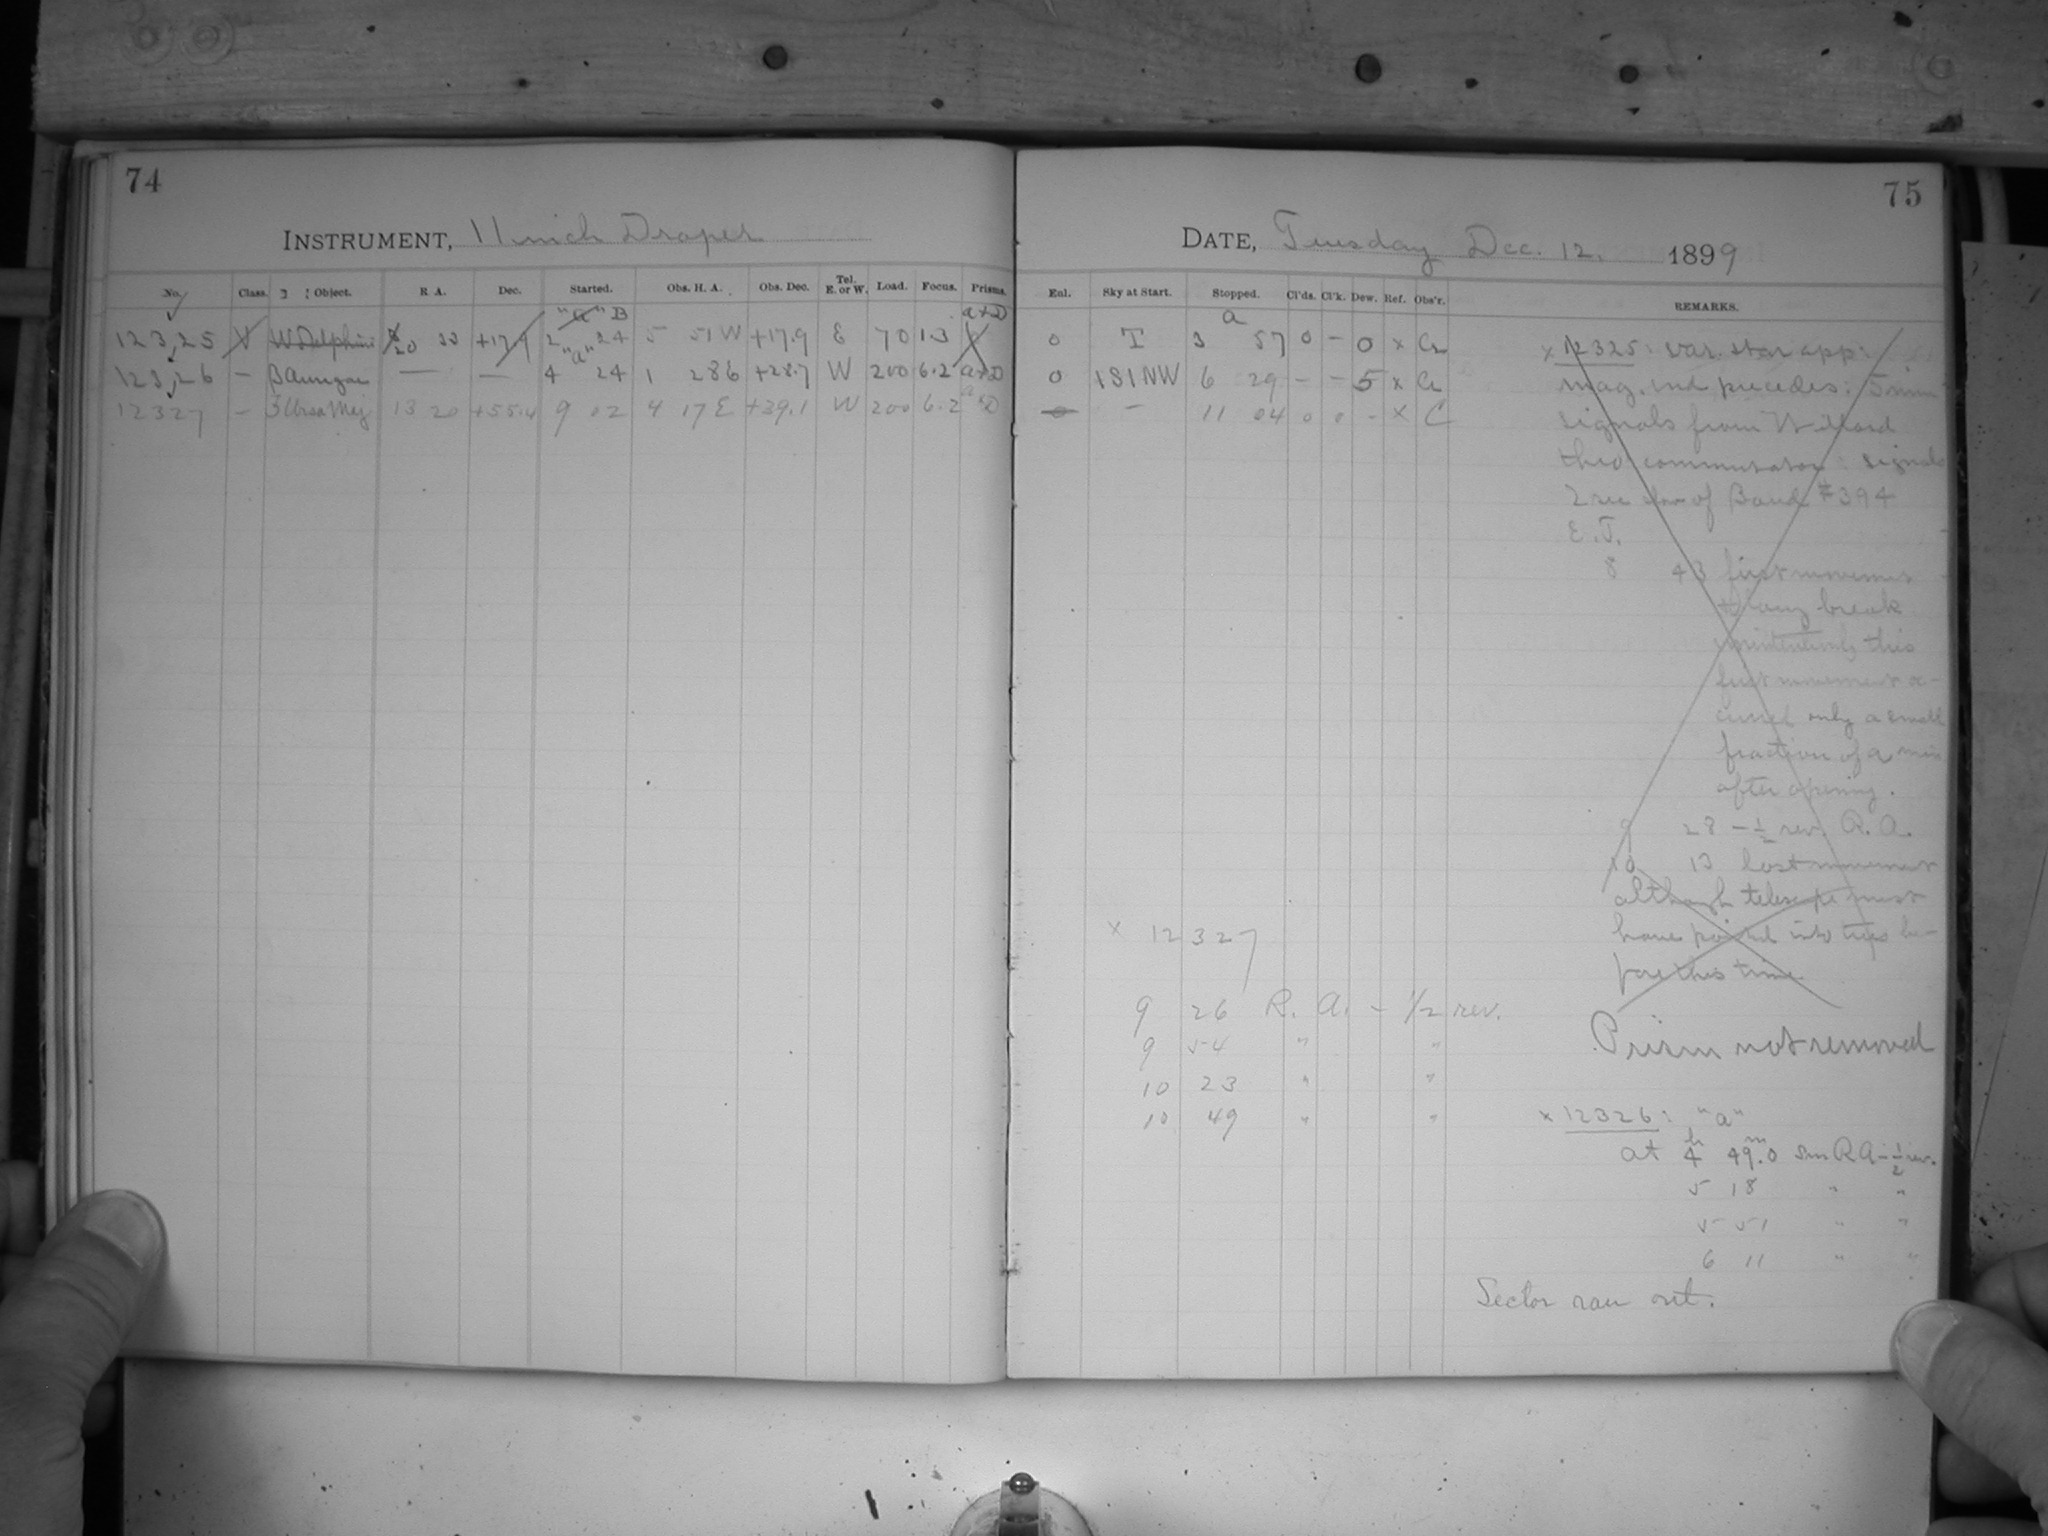 74
INSTRUMENT, 11 inch Draper
No. Class. Object. R A. Dec. Started. Obs. H. A. Obs. Dec. Tel. E. or W. Load. Focus. Prisms.
"a" B a+D
12325 V W Delphini 20 33 +17.9 2 24 5 51 W +17.9 E 70 13
"a"
12326 — β Aurigae — — 4 24 1 28 6 +28.7 W 200 6.2 a+D
12327 — ζ Ursa Maj 13 20 +55.4 9 02 4 17 E +39.1 W 200 6.2 a+D
75
DATE, Tuesday Dec. 12. 1899
Enl. Sky at Start. Stopped. Cl'ds. Cl'k. Dew. Ref. Obs'r. REMARKS.
a
0 T 3 57 0 - 0 x
0 1S1NW 6 29 - - 5 x
— 11 04 0 0 - x C
x 12325: var. star app:
mag. ind precedes: 5 min
signals from Willard
commutator: signals
2 sec slow of Bond #394
E. T.
8 43 first movement
long break
this
first movement
only a small
fraction of a min
after opening.
9 28 - 1/2 rev. R. A.
10 13 last movement
although telescope must
have pointed into trees be-
fore this time
Prism not removed
x 12327
9 26 R. A. - 1/2 rev.
9 54 " "
10 23 " "
10 49 " "
x 12326: "a"
at 4h 49m.0 R A - 1/2 rev.
5 18 " "
5 51 " "
6 11 " "
Sector ran out.